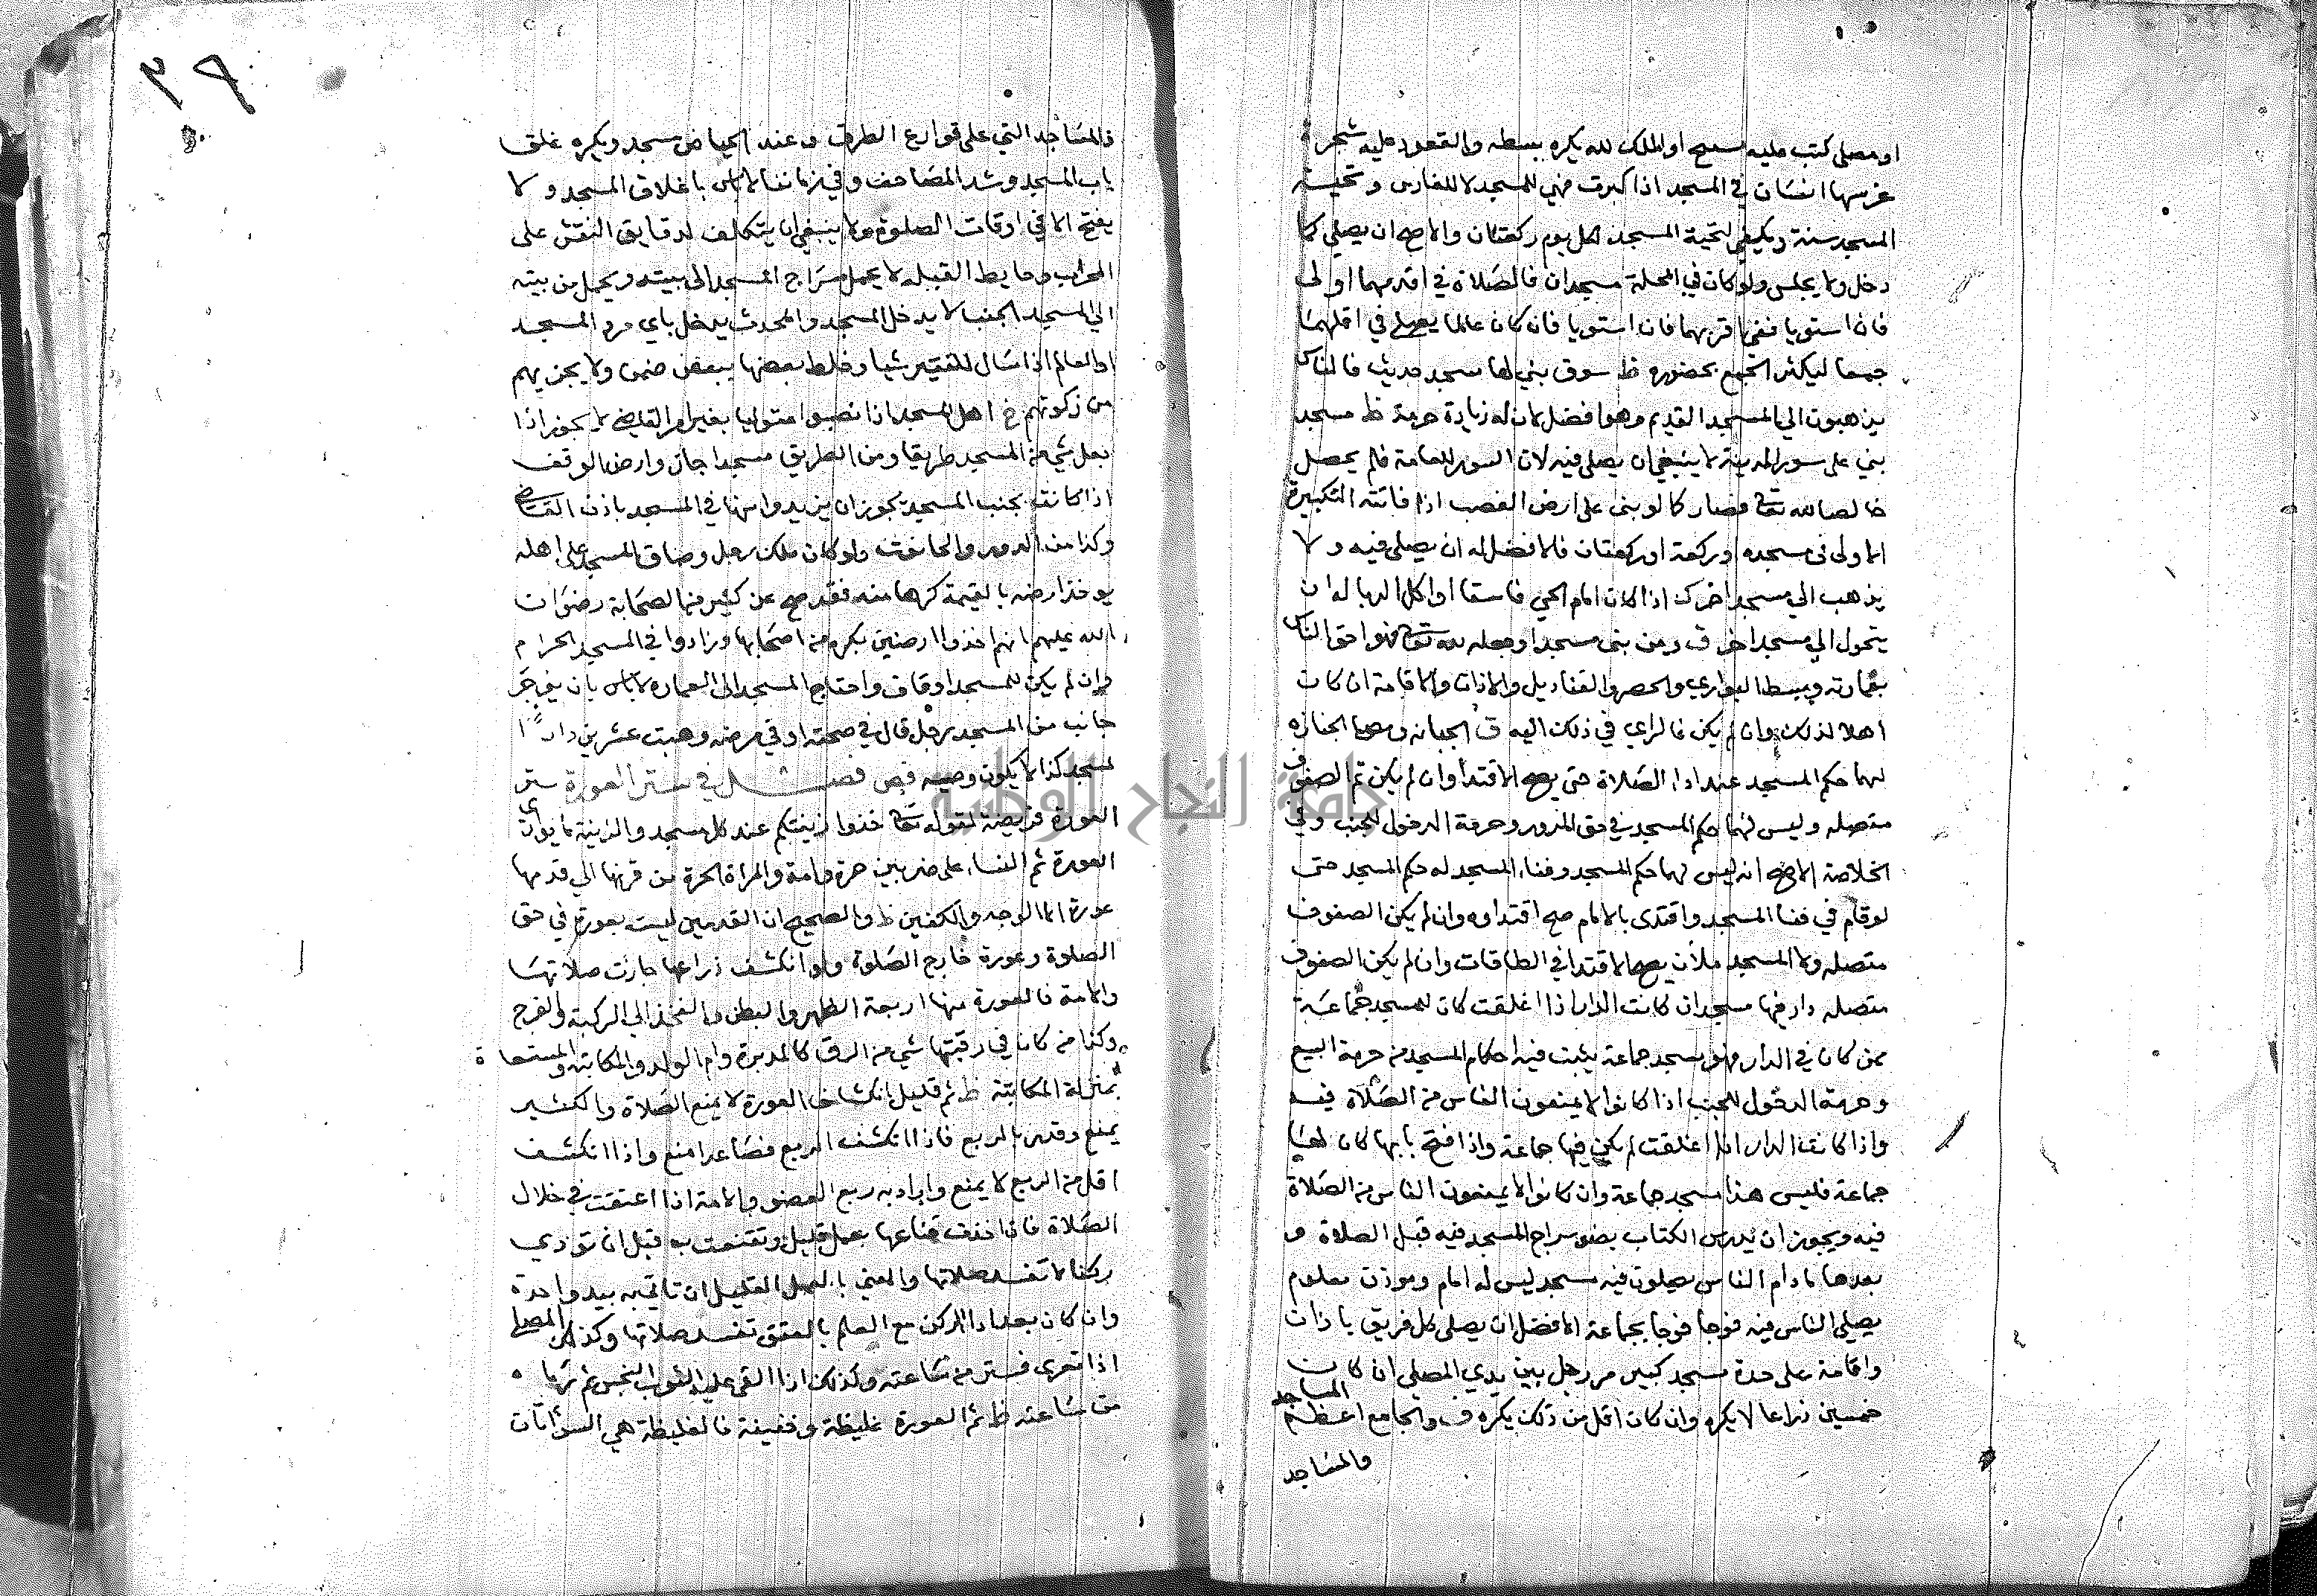 او مصلى كتب عليه سبح او الملك لله يكره بسطه والقعود عليه شجرة
غرسها انسان في المسجد اذا كبرت فهي للمسجد لا للغارس وتحية
المسجد سنة ويكفي لتحية المسجد لكل يوم ركعتان والاصح ان يصلي كما
دخل ولا يجلس ولو كان في المحلة مسجدان فالصلاة في اقدمهما اولى
فان استويا ففي اقربهما فان استويا فان كان عالما يصلي في اقلهما
جمعا ليكثر الجمع بحضوره ظ سوق بني لها مسجد حديث فالناس
يذهبون الي المسجد القديم وهو افضل لان له زيادة حرمة ظ مسجد
بني على سور المدينة لا ينبغي ان يصلى فيه لان السور للعامة فلم يحصل
خالصا لله تعا فصار كما لو بنى على ارض الغصب اذا فاتته التكبيرة
الاولى في مسجده او ركعة او ركعتان فالافضل له ان يصلي فيه ولا
يذهب الي مسجد اخر ك اذا كان امام الحي فاسقا او اكل الربا له ان
يتحول الي مسجد اخر ف ومن بنى مسجدا وجعله لله تعا فهو احق الناس
بعمارته وببسط البواري والحصر والقناديل والاذان والاقامة ان كان
اهلا لذلك وان لم يكن فالراي في ذلك اليه ف الجبانه ومصلى الجنازه
لهما حكم المسجد عند ادا الصلاة حتى يصح الاقتدا وان لم يكن ثم الصفوف
متصله وليس لهما حكم المسجد في حق المرور وحرمة الدخول للجنب وفي
الخلاصة الاصح انه ليس لهما حكم المسجد وفناء المسجد له حكم المسجد حتى
لو قام في فنا المسجد واقتدى بالامام صح اقتداوه وان لم يكن الصفوف
متصله ولا المسجد ملآن يصح الاقتدا في الطاقات وان لم يكن الصفوف
متصله دار فيها مسجد ان كانت الدار اذا اغلقت كان للمسجد جماعة
ممن كان في الدار فهو مسجد جماعة يثبت فيه احكام المسجد من حرمة البيع
وحرمة الدخول للجنب اذا كانوا لا يمنعون الناس من الصلاة فيه
واذا كانت الدار اذا اغلقت لم يكن فيها جماعة واذا فتح بابها كان لها
جماعة فليس هذا مسجد جماعة وان كانوا لا يمنعون الناس من الصلاة
فيه ويجوز ان يدرس الكتاب بضو سراج المسجد فيه قبل الصلاة و
بعدها ما دام الناس يصلون فيه مسجد ليس له امام وموذن معلوم
يصلي الناس فيه فوجا فوجا بجماعة الافضل ان يصلي كل فريق باذان
واقامة على حدة مسجد كبير مر رجل بين يدي المصلي ان كان
خمسين ذراعا لا يكره وان كان اقل من ذلك يكره ف والجامع اعظم المساجد
والمساجد
٣٩
فالمساجد التي على قوارع الطرق وعند الحياض مسجد ويكره غلق
باب المسجد وشد المصاحف وفي زماننا لا باس باغلاق المسجد ولا
يفتح الا في اوقات الصلوة ولا ينبغي ان يتكلف لدقايق النقش على
المحراب وحايط القبله لا يحمل سراج المسجد الى بيته ويحمل من بيته
الي المسجد الجنب لا يدخل المسجد والمحدث يدخل باي حرم المسجد
او العالم اذا سال للفقير شيا وخلط بعضها ببعض ضمن ولا يجزيهم
من زكوتهم خ اهل المسجد اذا نصبوا متوليا بغير امر القاضي لا يجوز اذا
جعل شي من المسجد طريقا ومن الطريق مسجدا جاز وارض الوقف
اذا كانت بجنب المسجد يجوز ان يزيدوا منها في المسجد باذن القاضي
وكذا من الدور والحانوت ولو كان ملك رجل وضاق المسجد على اهله
يوخذ ارضه بالقيمة كرها منه فقد صح عن كثير من الصحابة رضوان
الله عليهم انهم اخذوا ارضين بكره من اصحابها وزادوا في المسجد الحرام
وان لم يكن للمسجد اوقاف واحتاج المسجد الى العمارة لا باس بان يوجر
جانب من المسجد رجل قال في صحته او في مرضه وهبت عشرين دارا
لمسجد كذا لا يكون وصيه فصل في ستر العورة ستر
العورة فريضة لقوله تعا خذوا زينتكم عند كل مسجد والزينة ما يواري
العورة ثم النساء على ضربين حرة وامة والمراة الحرة من قرنها الي قدمها
عورة الا الوجه والكفين ظ والصحيح ان القدمين ليست بعورة في حق
الصلوة وعورة خارج الصلوة ولو انكشف ذراعها جازت صلاتها
والامة فالعورة منها اربعة الظهر والبطن والفخذ الي الركبة والفرج
وكذا من كان في رقبتها شي من الرق كالمدبرة وام الولد والمكاتبة والمستسعاة
بمنزلة المكاتبة ظ ثم قليل انكشاف العورة لا يمنع الصلاة والكثير
يمنع وقدر بالربع فاذا انكشف الربع فصاعدا منع واذا انكشف
اقل من الربع لا يمنع واراد به ربع العضو والامة اذا اعتقت في خلال
الصلاة فاذا اخذت قناعها بعمل قليل وتقنعت به قبل ان تودي
ركنا لا تفسد صلاتها والمعني بالعمل القليل ان تاتي به بيد واحدة
وان كان بعد ادا الركن مع العلم بالعتق تفسد صلاتها وكذلك المصلي
اذا تعرى فستر من ساعته وكذلك اذا القي عليه الثوب النجس ثم رماه
من ساعته ظ ثم العورة غليظة وخفيفة فالغليظة هي السوأتان
جامعة النجاح الوطنية